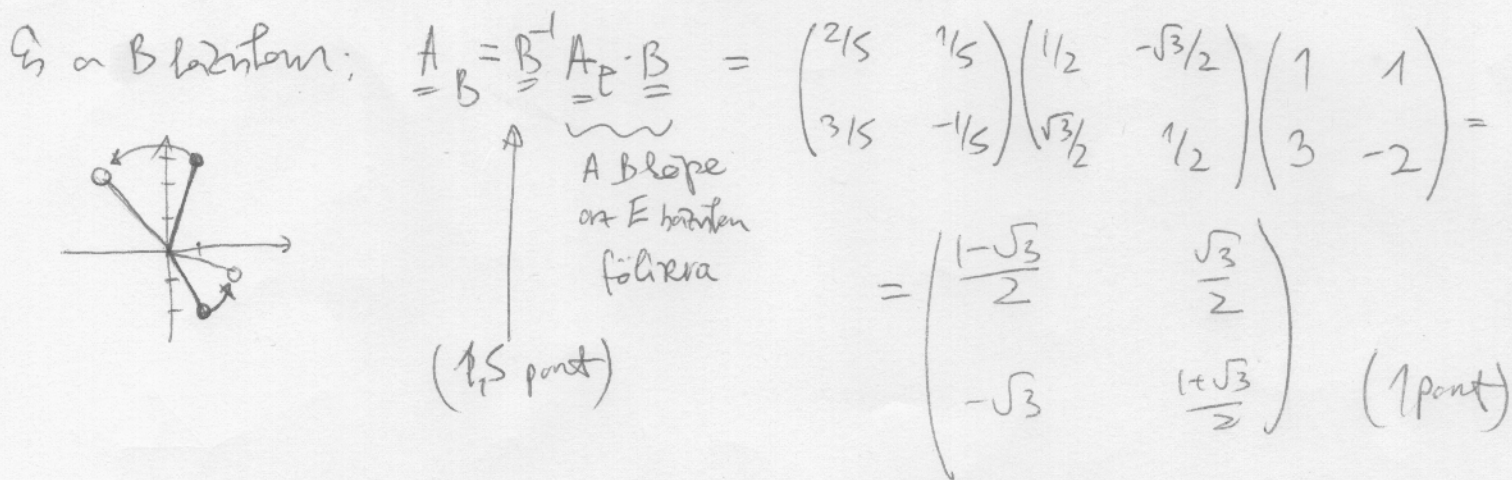 És a B bázisban: A_B = B^{-1} A_E · B = \begin{pmatrix} 2/5 & 1/5 \\ 3/5 & -1/5 \end{pmatrix} \begin{pmatrix} 1/2 & -√3/2 \\ √3/2 & 1/2 \end{pmatrix} \begin{pmatrix} 1 & 1 \\ 3 & -2 \end{pmatrix} =
A B képe
az E bázisban
fölírva
= \begin{pmatrix} \frac{1-√3}{2} & \frac{√3}{2} \\ -√3 & \frac{1+√3}{2} \end{pmatrix} (1 pont)
(1,5 pont)